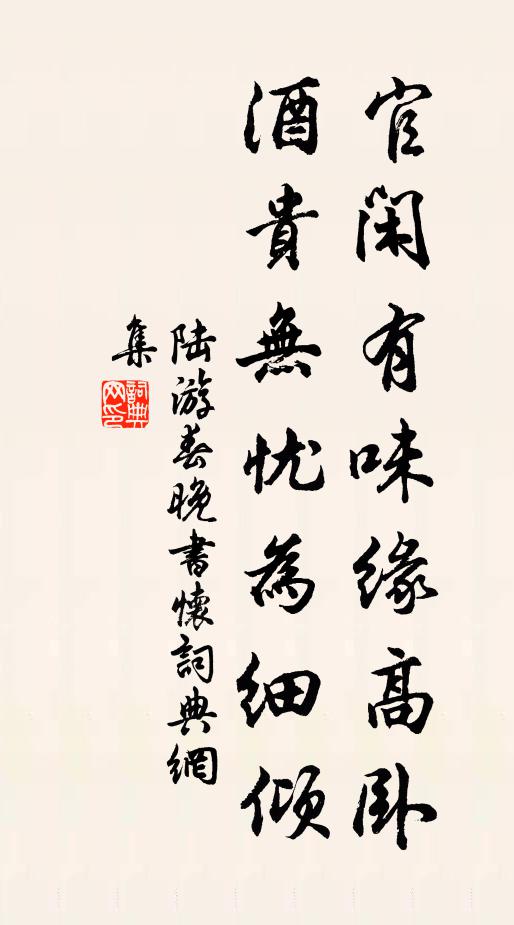 官閑有味緣高卧
酒貴無忧為細傾
陆游春晚書懷詞典網
集
詞典网印